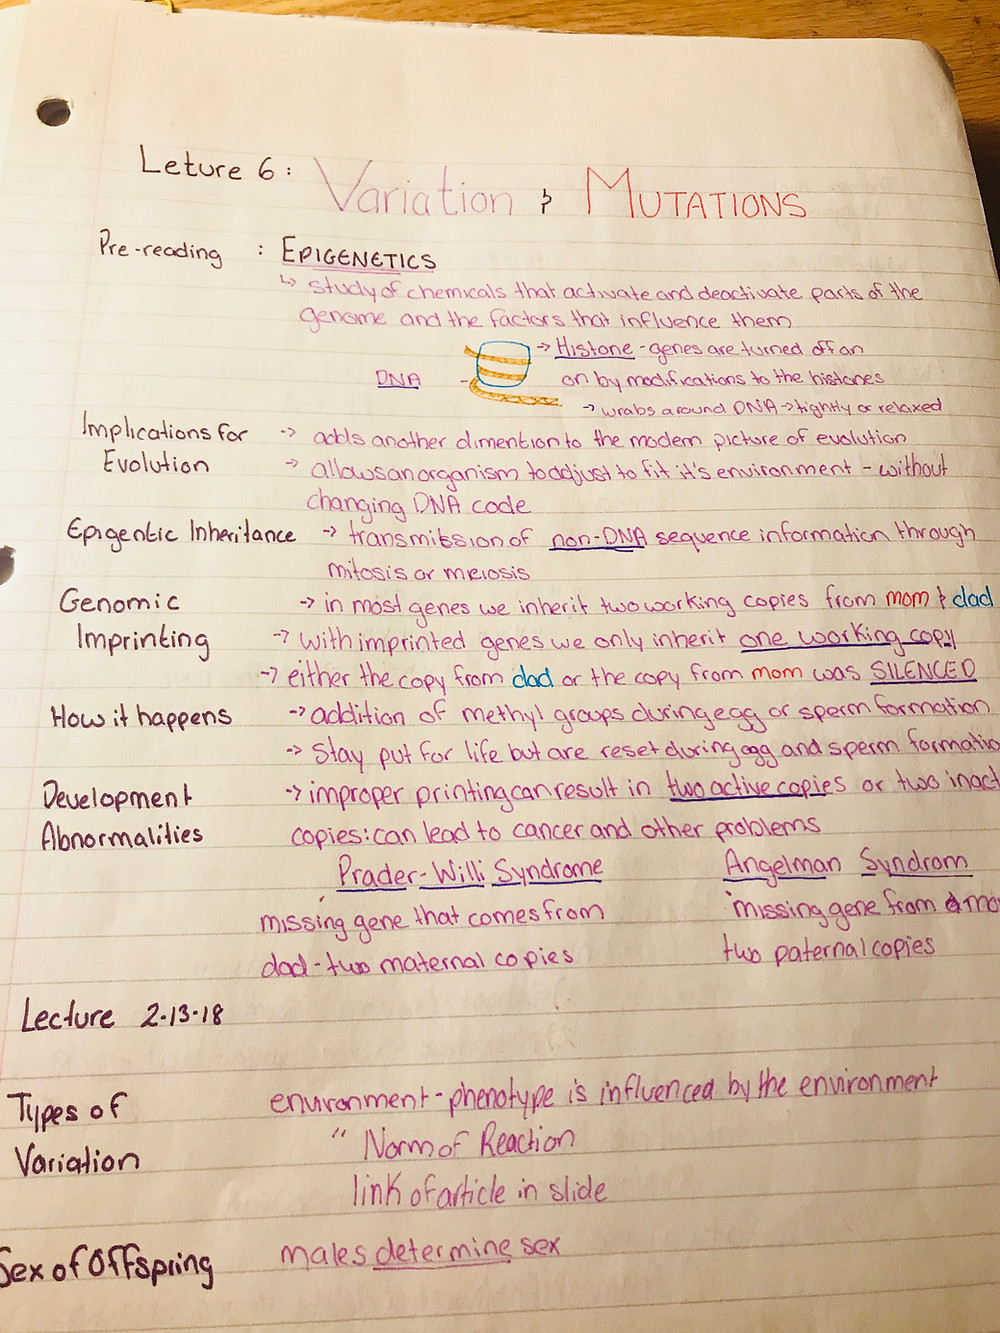 Leture 6: Variation & MUTATIONS
Pre-reading : EPIGENETICS
↳ study of chemicals that activate and deactivate parts of the
genome and the factors that influence them
→ Histone - genes are turned off an
DNA - on by modifications to the histones
→ wrabs around DNA → tightly or relaxed
Implications for → adds another dimention to the modern picture of evolution
Evolution → allows an organism to adjust to fit it's environment - without
changing DNA code
Epigentic Inheritance → transmission of non-DNA sequence information through
mitosis or meiosis
Genomic → in most genes we inherit two working copies from mom & dad
Imprinting → with imprinted genes we only inherit one working copy
→ either the copy from dad or the copy from mom was SILENCED
How it happens → addition of methyl groups during egg or sperm formation
→ Stay put for life but are reset during egg and sperm formatio
Development → improper printing can result in two active copies or two inact
Abnormalities copies: can lead to cancer and other problems
Prader-Willi Syndrome Angelman Syndrom
missing gene that comes from missing gene from mo
dad - two maternal copies two paternal copies
Lecture 2-13-18
Types of environment - phenotype is influenced by the environment
Variation " Norm of Reaction
link of article in slide
Sex of Offspring males determine sex